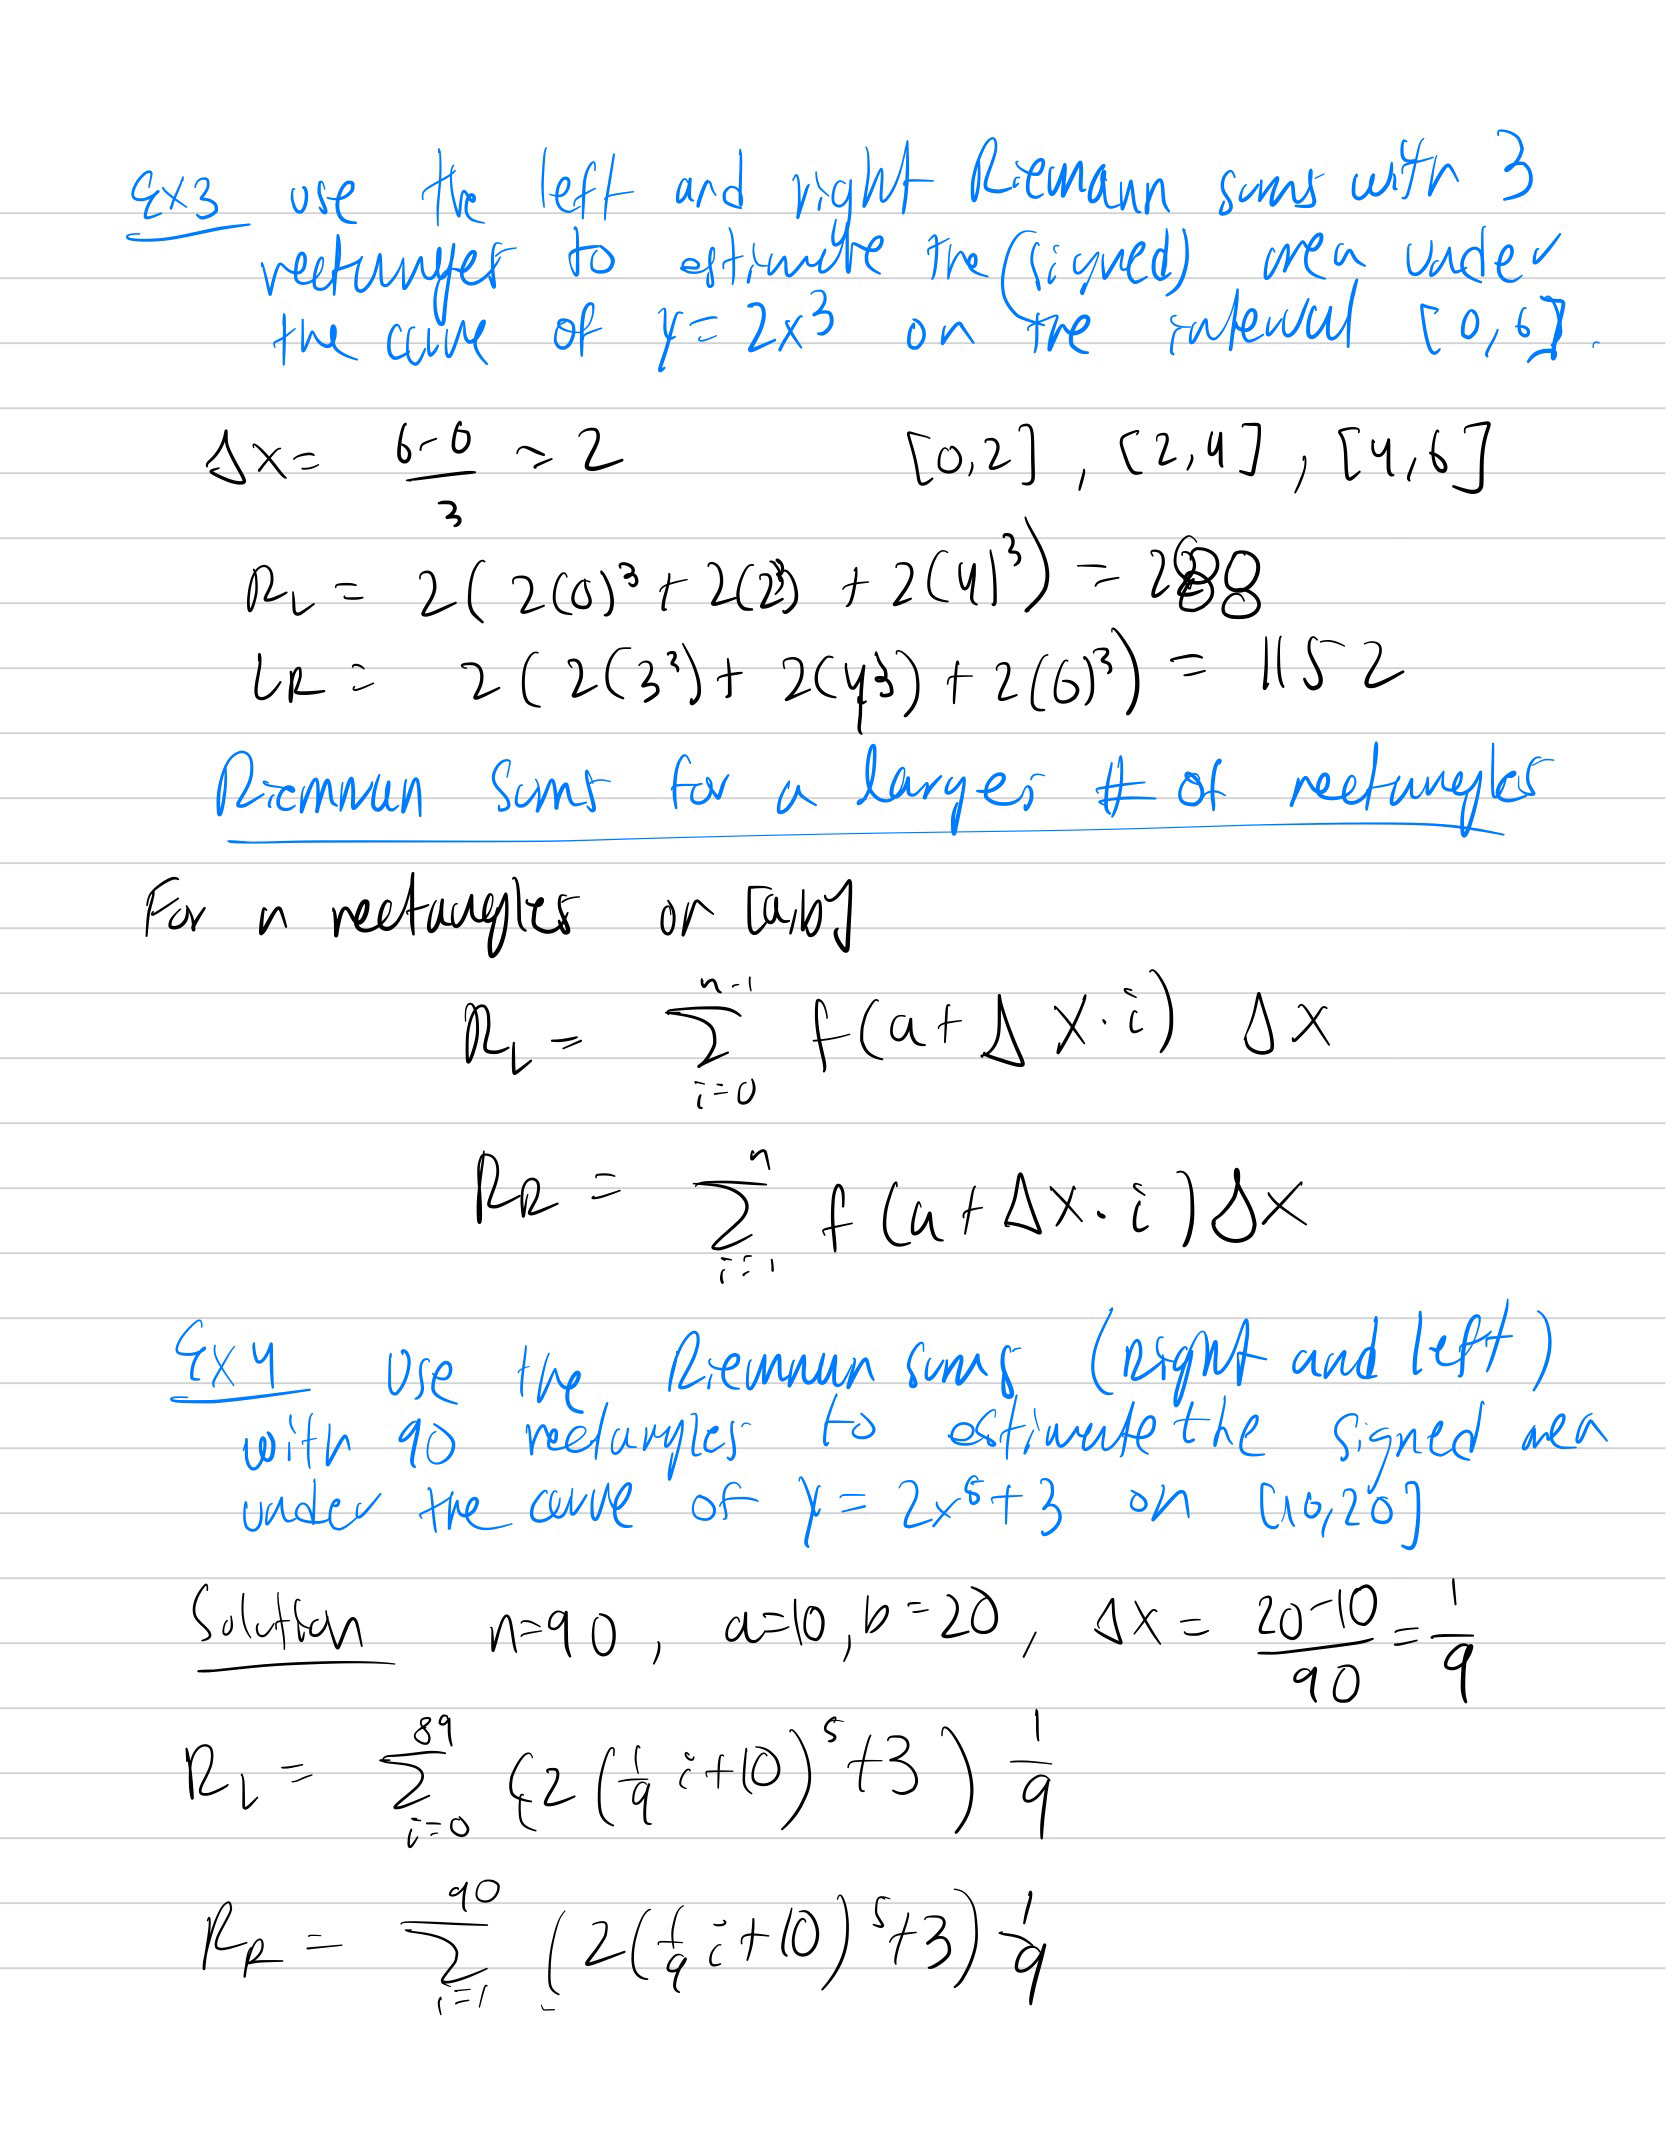 Ex3 use the left and right Riemann sums with 3
rectangles to estimate the (signed) area under
the curve of y = 2x³ on the interval [0,6].
Δx = (6-0)/3 = 2 [0,2], [2,4], [4,6]
R_L = 2(2(0)³ + 2(2³) + 2(4)³) = 288
L_R = 2(2(3³) + 2(4³) + 2(6)³) = 1152
Riemann Sums for a larges # of rectangles
For n rectangles on [a,b]
R_L = Σ_{i=0}^{n-1} f(a+Δx·i) Δx
R_R = Σ_{i=1}^{n} f(a+Δx·i)Δx
Ex4 Use the Riemann sums (right and left)
with 90 rectangles to estimate the signed area
under the curve of y = 2x⁵+3 on [10,20]
Solution n=90, a=10, b=20, Δx = (20-10)/90 = 1/9
R_L = Σ_{i=0}^{89} (2(1/9 i+10)⁵+3) 1/9
R_R = Σ_{i=1}^{90} (2(1/9 i+10)⁵+3) 1/9